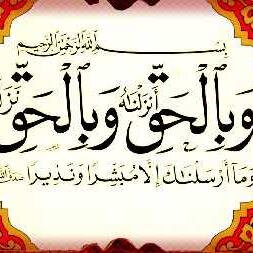 بِسْمِ اللهِ الرَّحْمٰنِ الرَّحِيْمِ
وَبِالْحَقِّ أَنْزَلْنَاهُ وَبِالْحَقِّ نَزَلَ
وَمَا أَرْسَلْنَاكَ إِلَّا مُبَشِّرًا وَنَذِيرًا